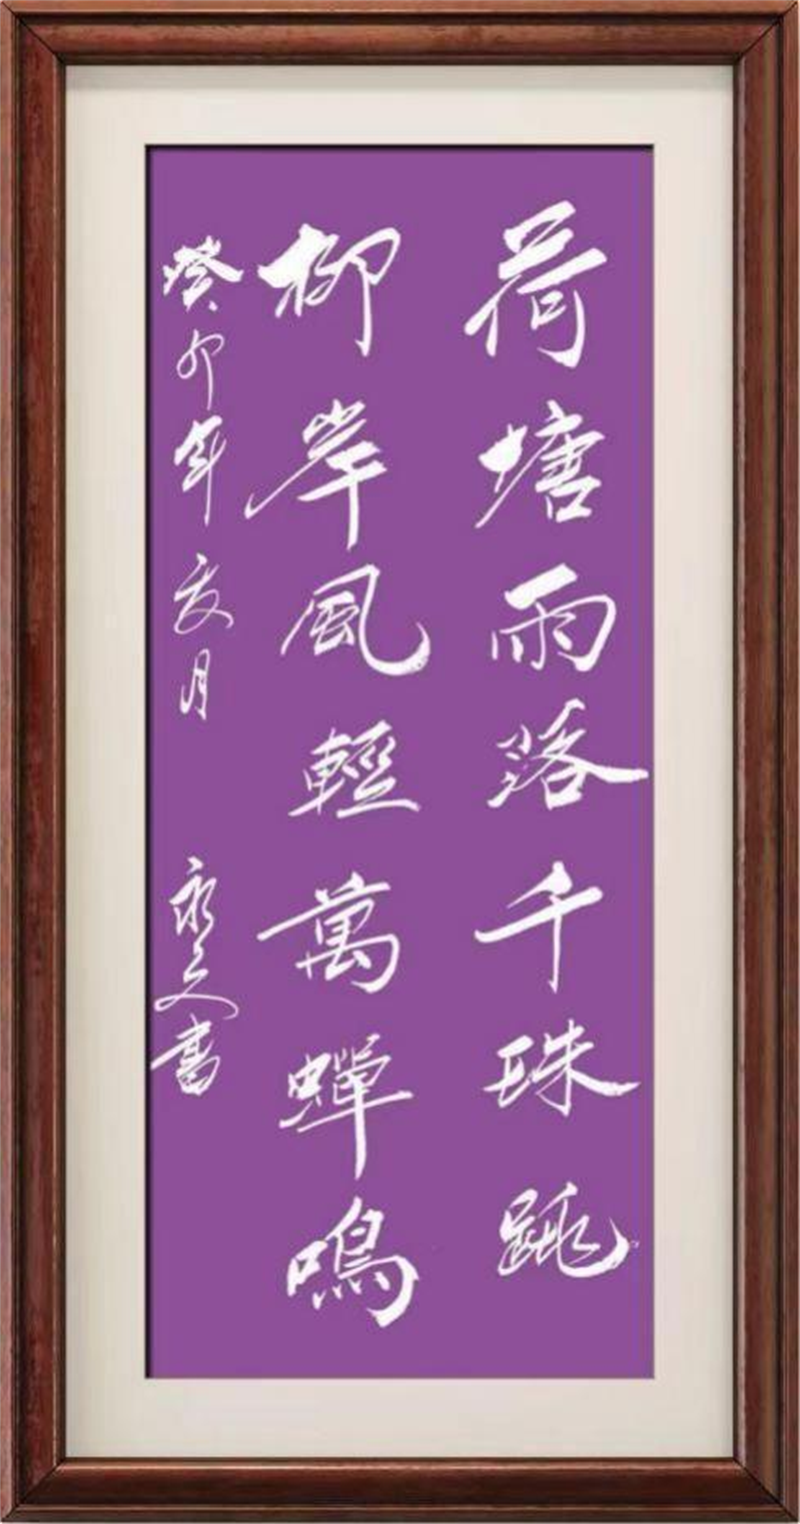 荷塘雨落千珠跳
柳岸風輕萬蟬鳴
癸卯年夏月
永久書